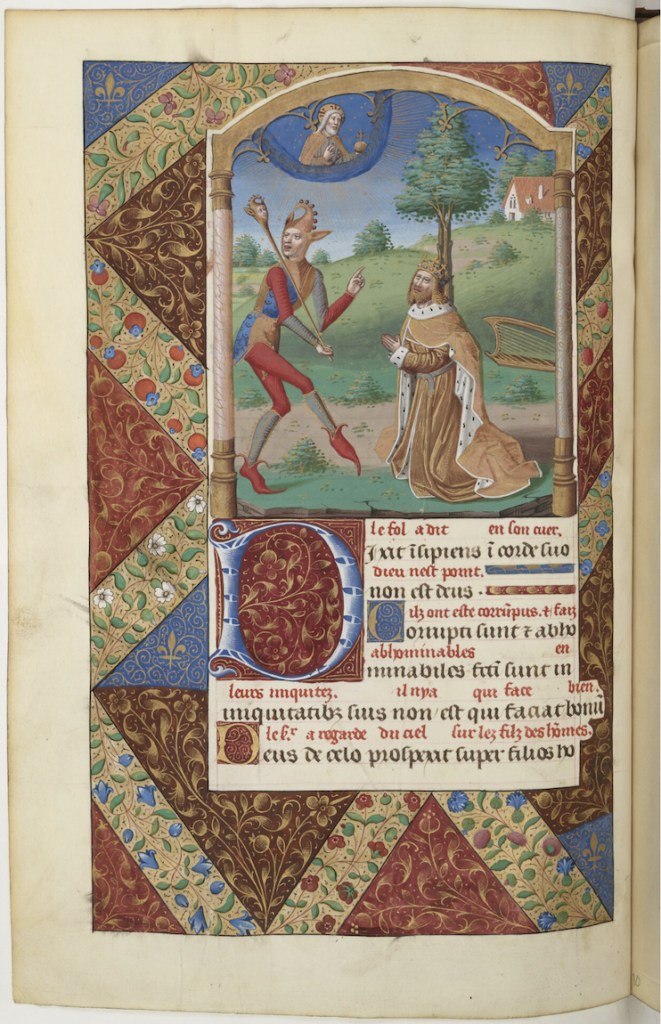 le fol a dit en son cuer.
Dixit īsipiens ī corde suo
dieu nest point.
non est deus.
ilz ont este corrūpus. ⁊ faiz
Corrupti sunt ⁊ abho
abhominables en
minabiles fcti sunt in
leurs iniquitez. il nya qui face bien.
iniquitatibꝫ suis non est qui faciat bonū
le sʳ a regarde du ciel sur les filz des hōmes.
Deus de celo prospexit super filios ho